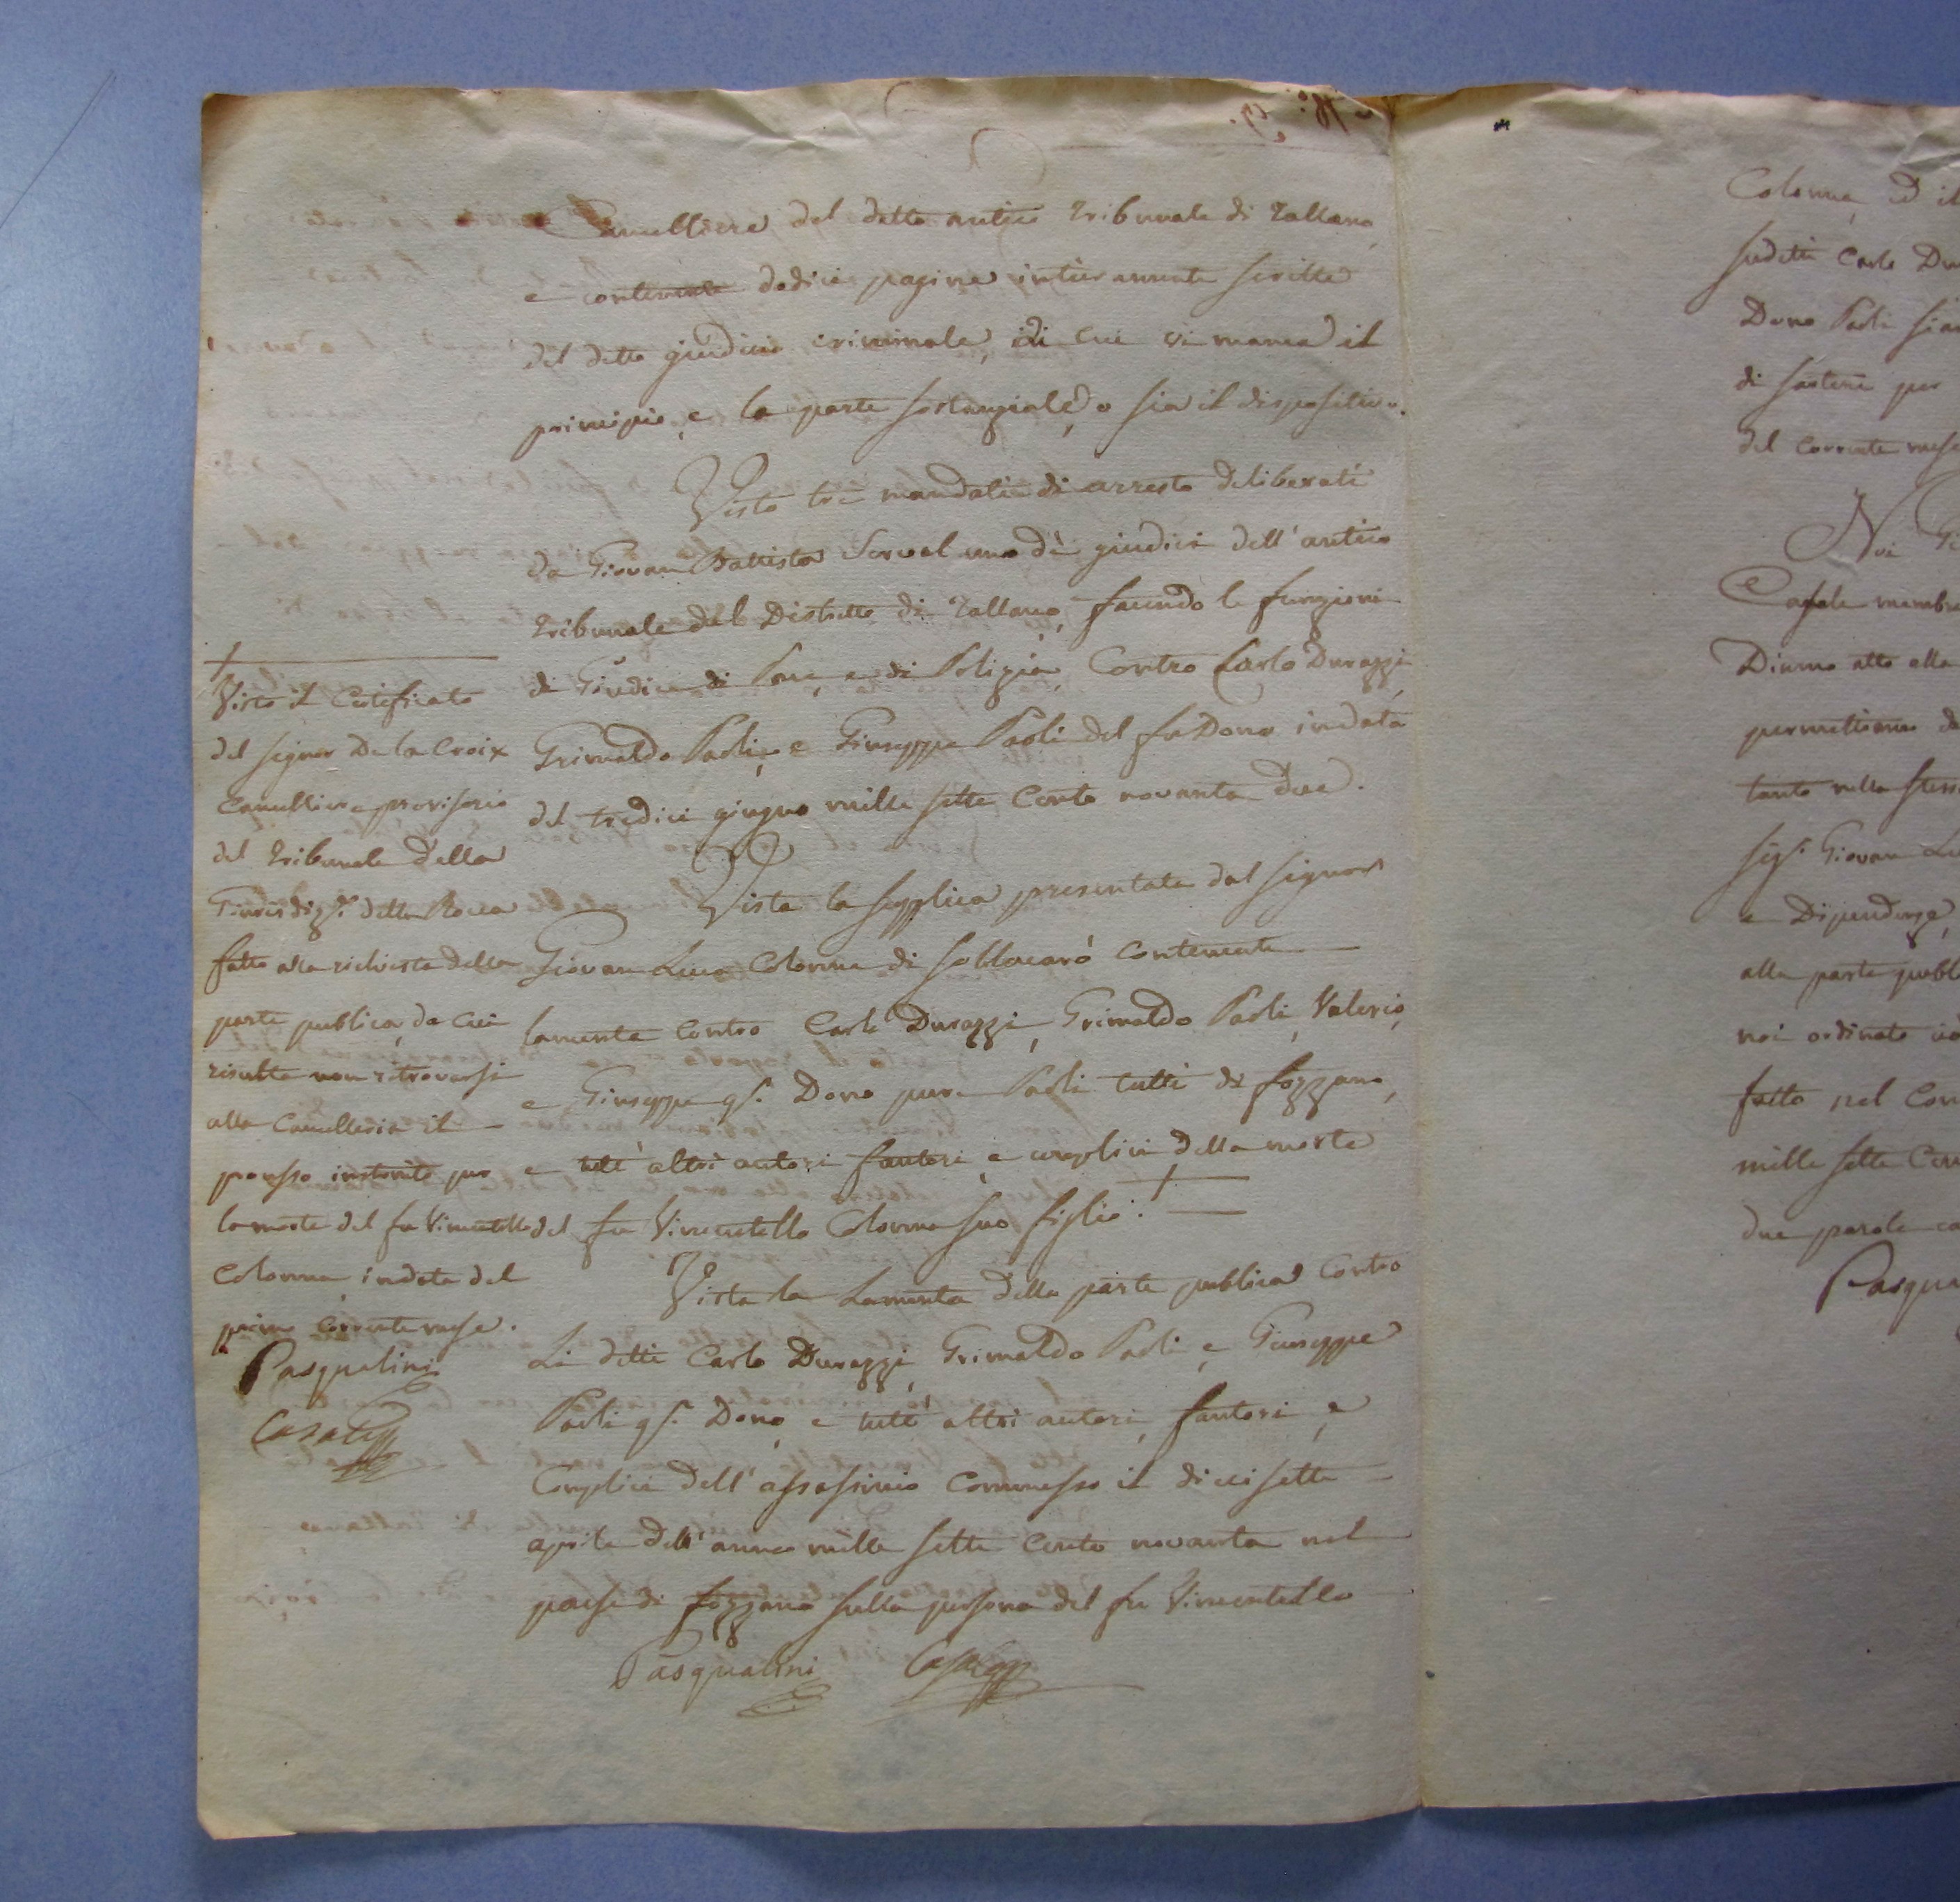 Cancelliere del detto antico Tribunale di Tallano,
e contenente dodici pagine intieramente scritte
del detto giudicio criminale, di cui vi manca il
principio, e la parte sostanziale, o sia il dispositivo.
Visto tre mandati di arresto deliberati
da Giovan Battista uno dè giudici dell'antico
Tribunale del Distretto di Tallano, facendo le funzioni
di Giudice di Pace, e di Polizia, Contro Carlo Durazzi,
Grimaldo Paoli, e Giuseppe Paoli del fu Dono in data
del tredici giugno mille sette Cento novanta due.
Vista la supplica presentata dal signor
Giovan Luca Colonna di Sollacarò contenente
lamenta contro Carlo Durazzi, Grimaldo Paoli, Valerio,
e Giuseppe qm. Dono pure Paoli tutti di fozzano,
e tutt'altri autori fautori, e complici della morte
del fu Vincentello Colonna suo figlio. +
Vista la Lamenta della parte publica contro
Li detti Carlo Durazzi, Grimaldo Paoli, e Giuseppe
Paoli qm. Dono, e tutt'altri autori, fautori, e
Complici dell'assassinio Commesso il diciisette
aprile dell'anno mille sette Cento novanta nel
paese di fozzano sulla persona del fu Vincentello
Pasqualini Casale
+
Visto il Certificato
del signor De la Croix
Cancelliere provisorio
del Tribunale della
Giurisdizne. della Rocca
fatto alla richiesta della
parte publica, da cui
risulta non ritrovarsi
alla Cancelleria il
processo instruito per
la morte del fu Vincentello
Colonna in data del
primo corrente mese.
Pasqualini
Casale
Colonna, ed il
sudetti Carlo
Dono Paoli
di sartene per
del corrente mese
Noi
Casale membro
Diamo atto alla
permettiamo
tanto nella
sigr. Giovan
e Dipendenze,
alla parte
noi ordinato
fatto nel
mille sette
due parole